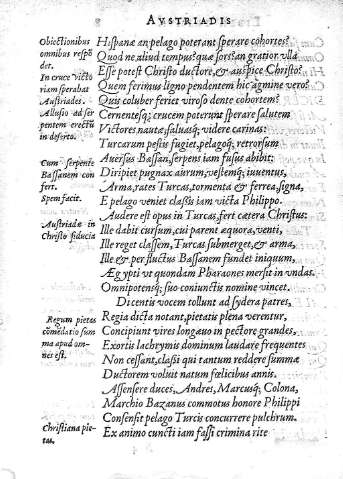 AVSTRIADIS
Obiectionibus
omnibus respō
det.
In cruce victo
riam sperabat
Austriades.
Allusio ad ser
pentem erectū
in deserto.
Cum serpente
Bassanem con
fert.
Spem facit.
Austriadæ in
Christo fiducia
Regum pietas
cōmēdatio sum
ma apud om-
nes est.
Christiana pie-
tas.
Hispanæ an pelago poterant sperare cohortes?
Quod ne aliud tempus? quæ sors? an gratior vlla
Esse potest Christo ductore, & auspice Christo?
Quem ferimus ligno pendentem hic agmine vero?
Quis coluber feriet viroso dente cohortem?
Cernentesq; crucem poterunt sperare salutem
Victores nautæ, saluasq; videre carinas:
Turcarum pestis fugiet, pelagoq; retrorsum
Auersus Bassan, serpens iam fusus abibit:
Diripiet pugnax aurum, vestemq; iuuentus,
Arma, rates Turcas, tormenta & ferrea, signa,
E pelago veniet classis iam victa Philippo.
Audere est opus in Turcas, fert cætera Christus:
Ille dabit cursum, cui parent æquora, venti,
Ille reget classem, Turcas submerget, & arma,
Ille & per fluctus Bassanem fundet iniquum,
Ægypti vt quondam Pharaones mersit in vndas.
Omnipotensq; suo coniunctis nomine vincet.
Dicentis vocem tollunt ad sydera patres,
Regia dicta notant, pietatis plena verentur,
Concipiunt vires longæuo in pectore grandes,
Exortis lachrymis dominum laudare frequentes
Non cessant, classi qui tantum reddere summæ
Ductorem voluit natum fœlicibus annis.
Assensere duces, Andres, Marcusq; Colona,
Marchio Bazanus commotus honore Philippi
Consensit pelago Turcis concurrere pulchrum.
Ex animo cuncti iam fassi crimina rite